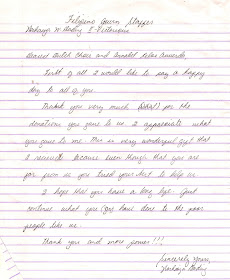 Dearest Dutch Choir and
First of all I would like to say a happy
day to all of you.
Thank you very much for the
donations you gave to me. I appreciate what
you gave to me. This is very wonderful gift that
I received because even though that you are
far from us you tried your best to help us.
I hope that you have a long life. Just
continue what you have done to the poor
people like me.
Thank you and more power!!!
Sincerely Yours,